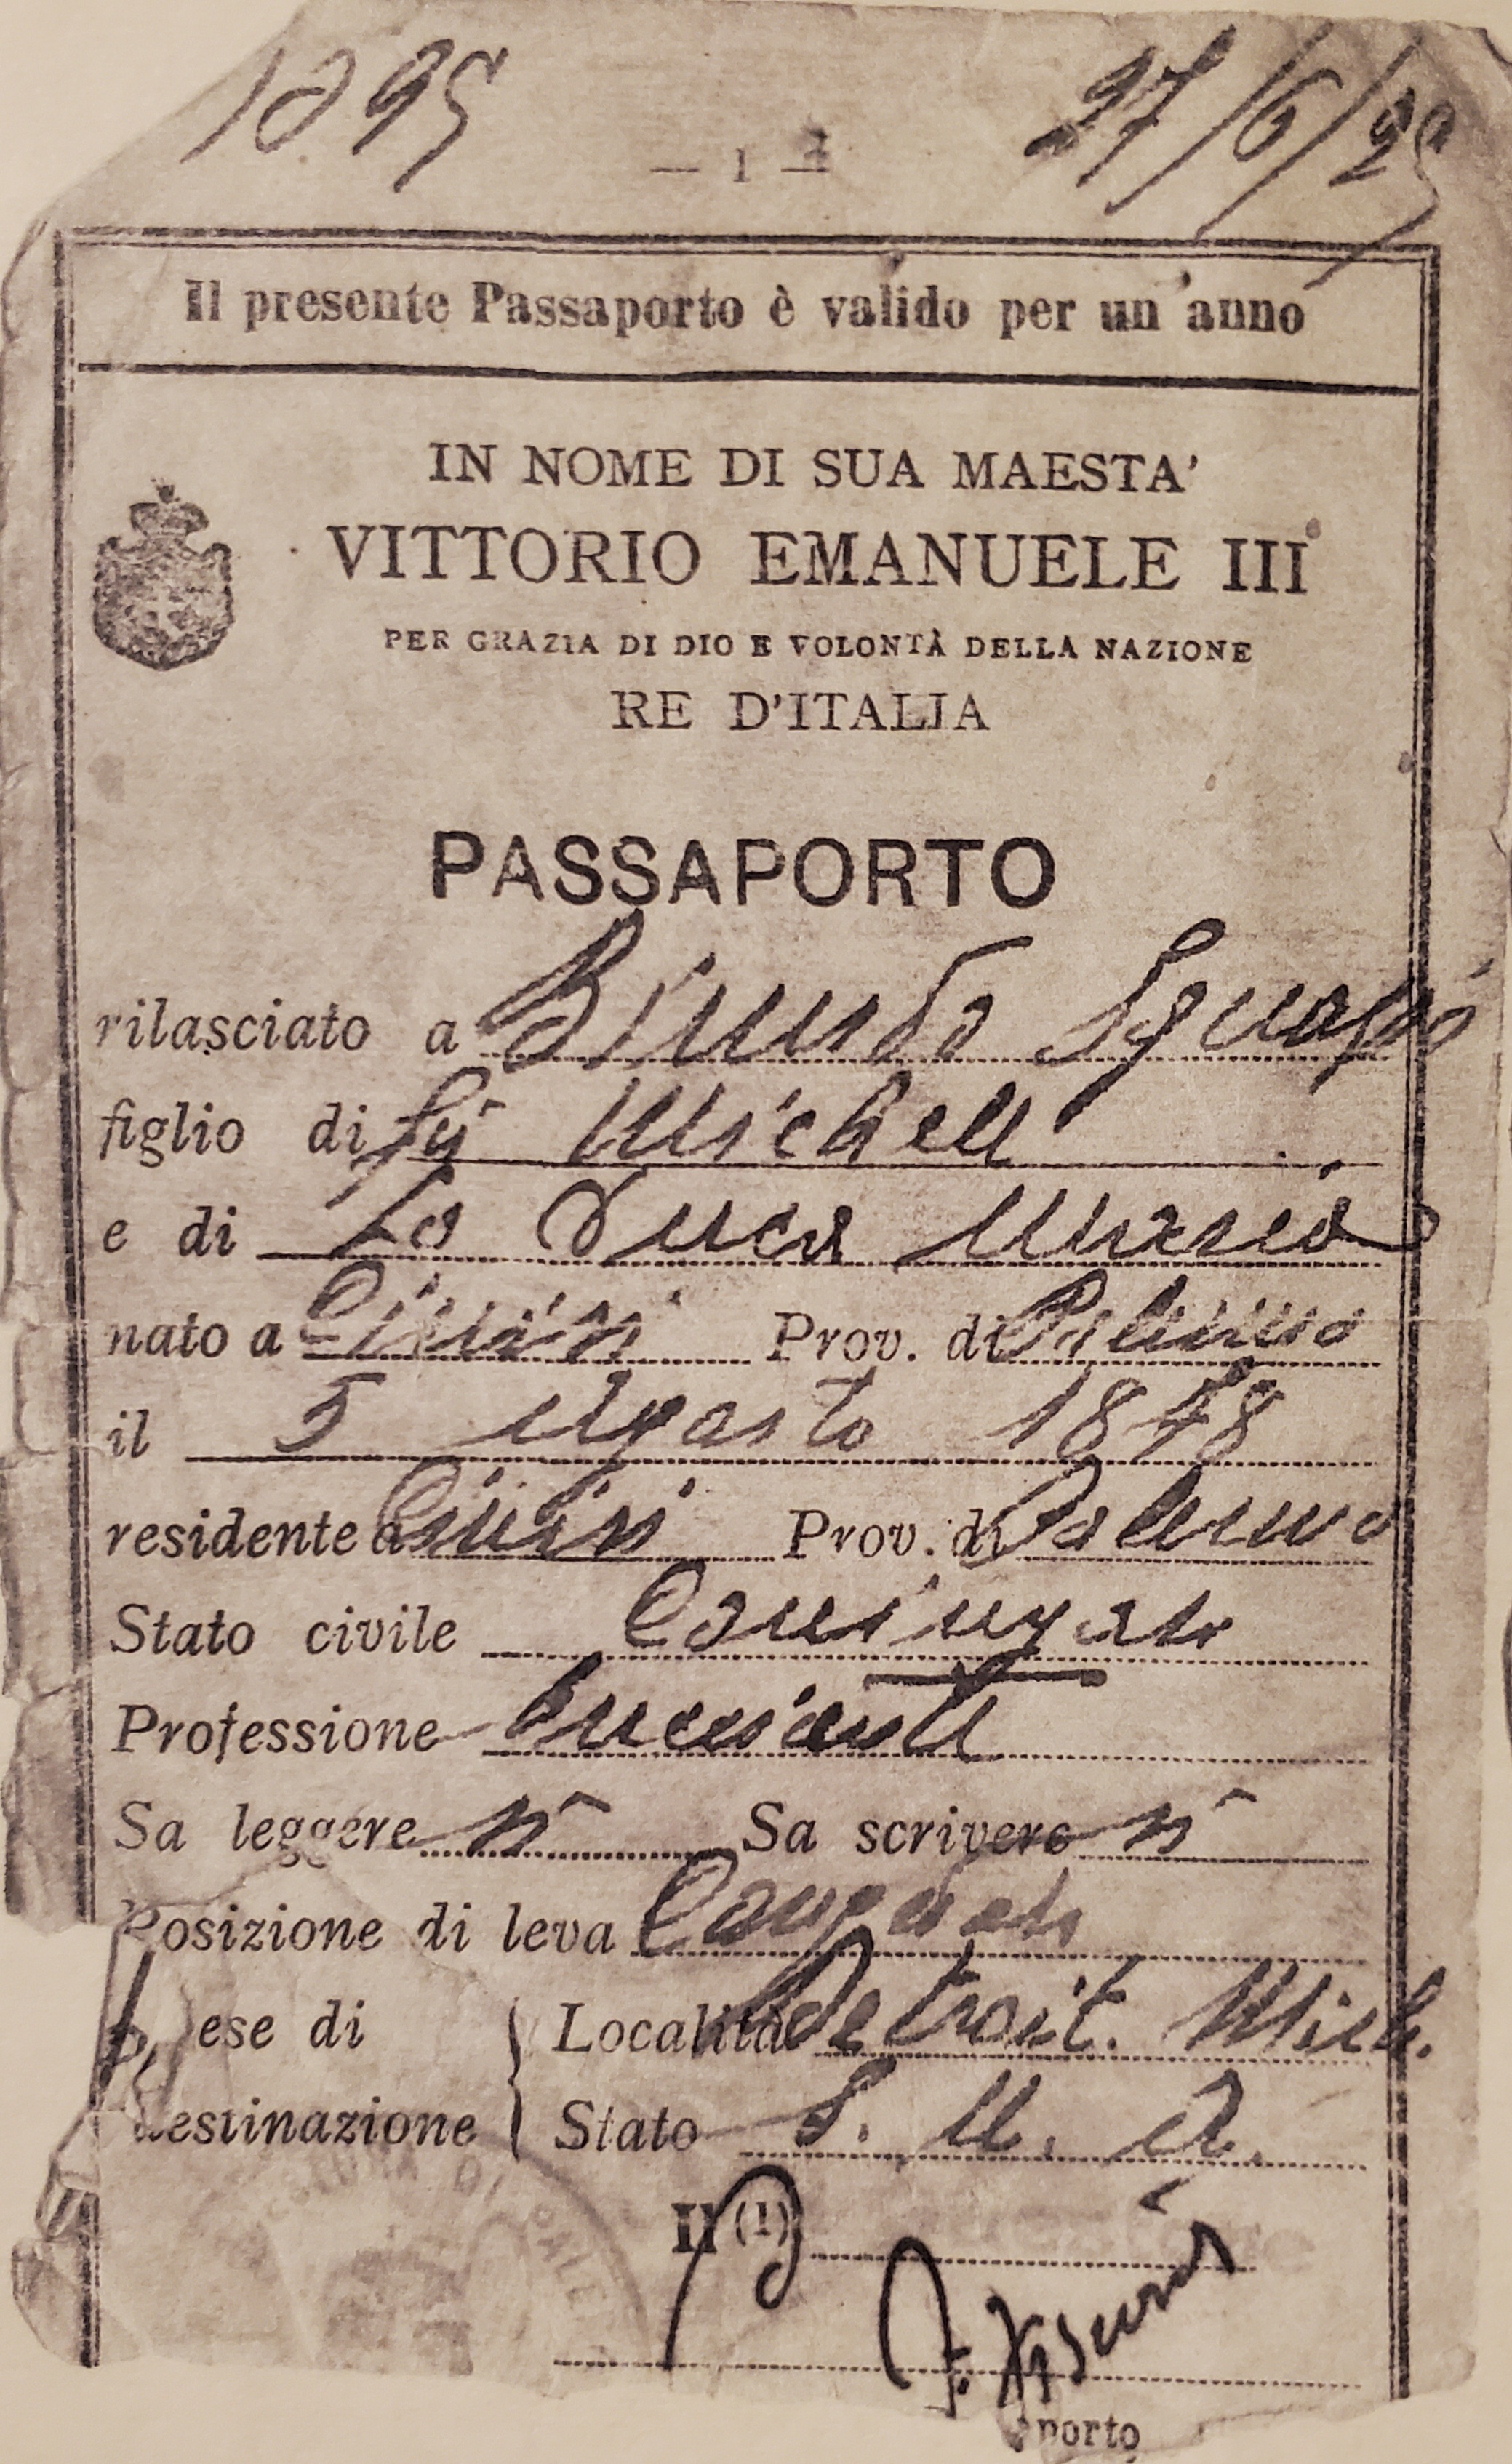 1895 27/6/25
— 1 —
Il presente Passaporto è valido per un anno
IN NOME DI SUA MAESTA'
VITTORIO EMANUELE III
PER GRAZIA DI DIO E VOLONTÀ DELLA NAZIONE
RE D'ITALIA
PASSAPORTO
rilasciato a Biundo
figlio di fu Michele
e di Lo Duca Maria
nato a Cinisi Prov. di Palermo
il 5 Agosto 1878
residente a Cinisi Prov. di Palermo
Stato civile Coniugato
Professione
Sa leggere Sa scrivere
Posizione di leva Congedato
ese di Località Detroit. Mich.
destinazione Stato S. U. A.
Il (1)
porto